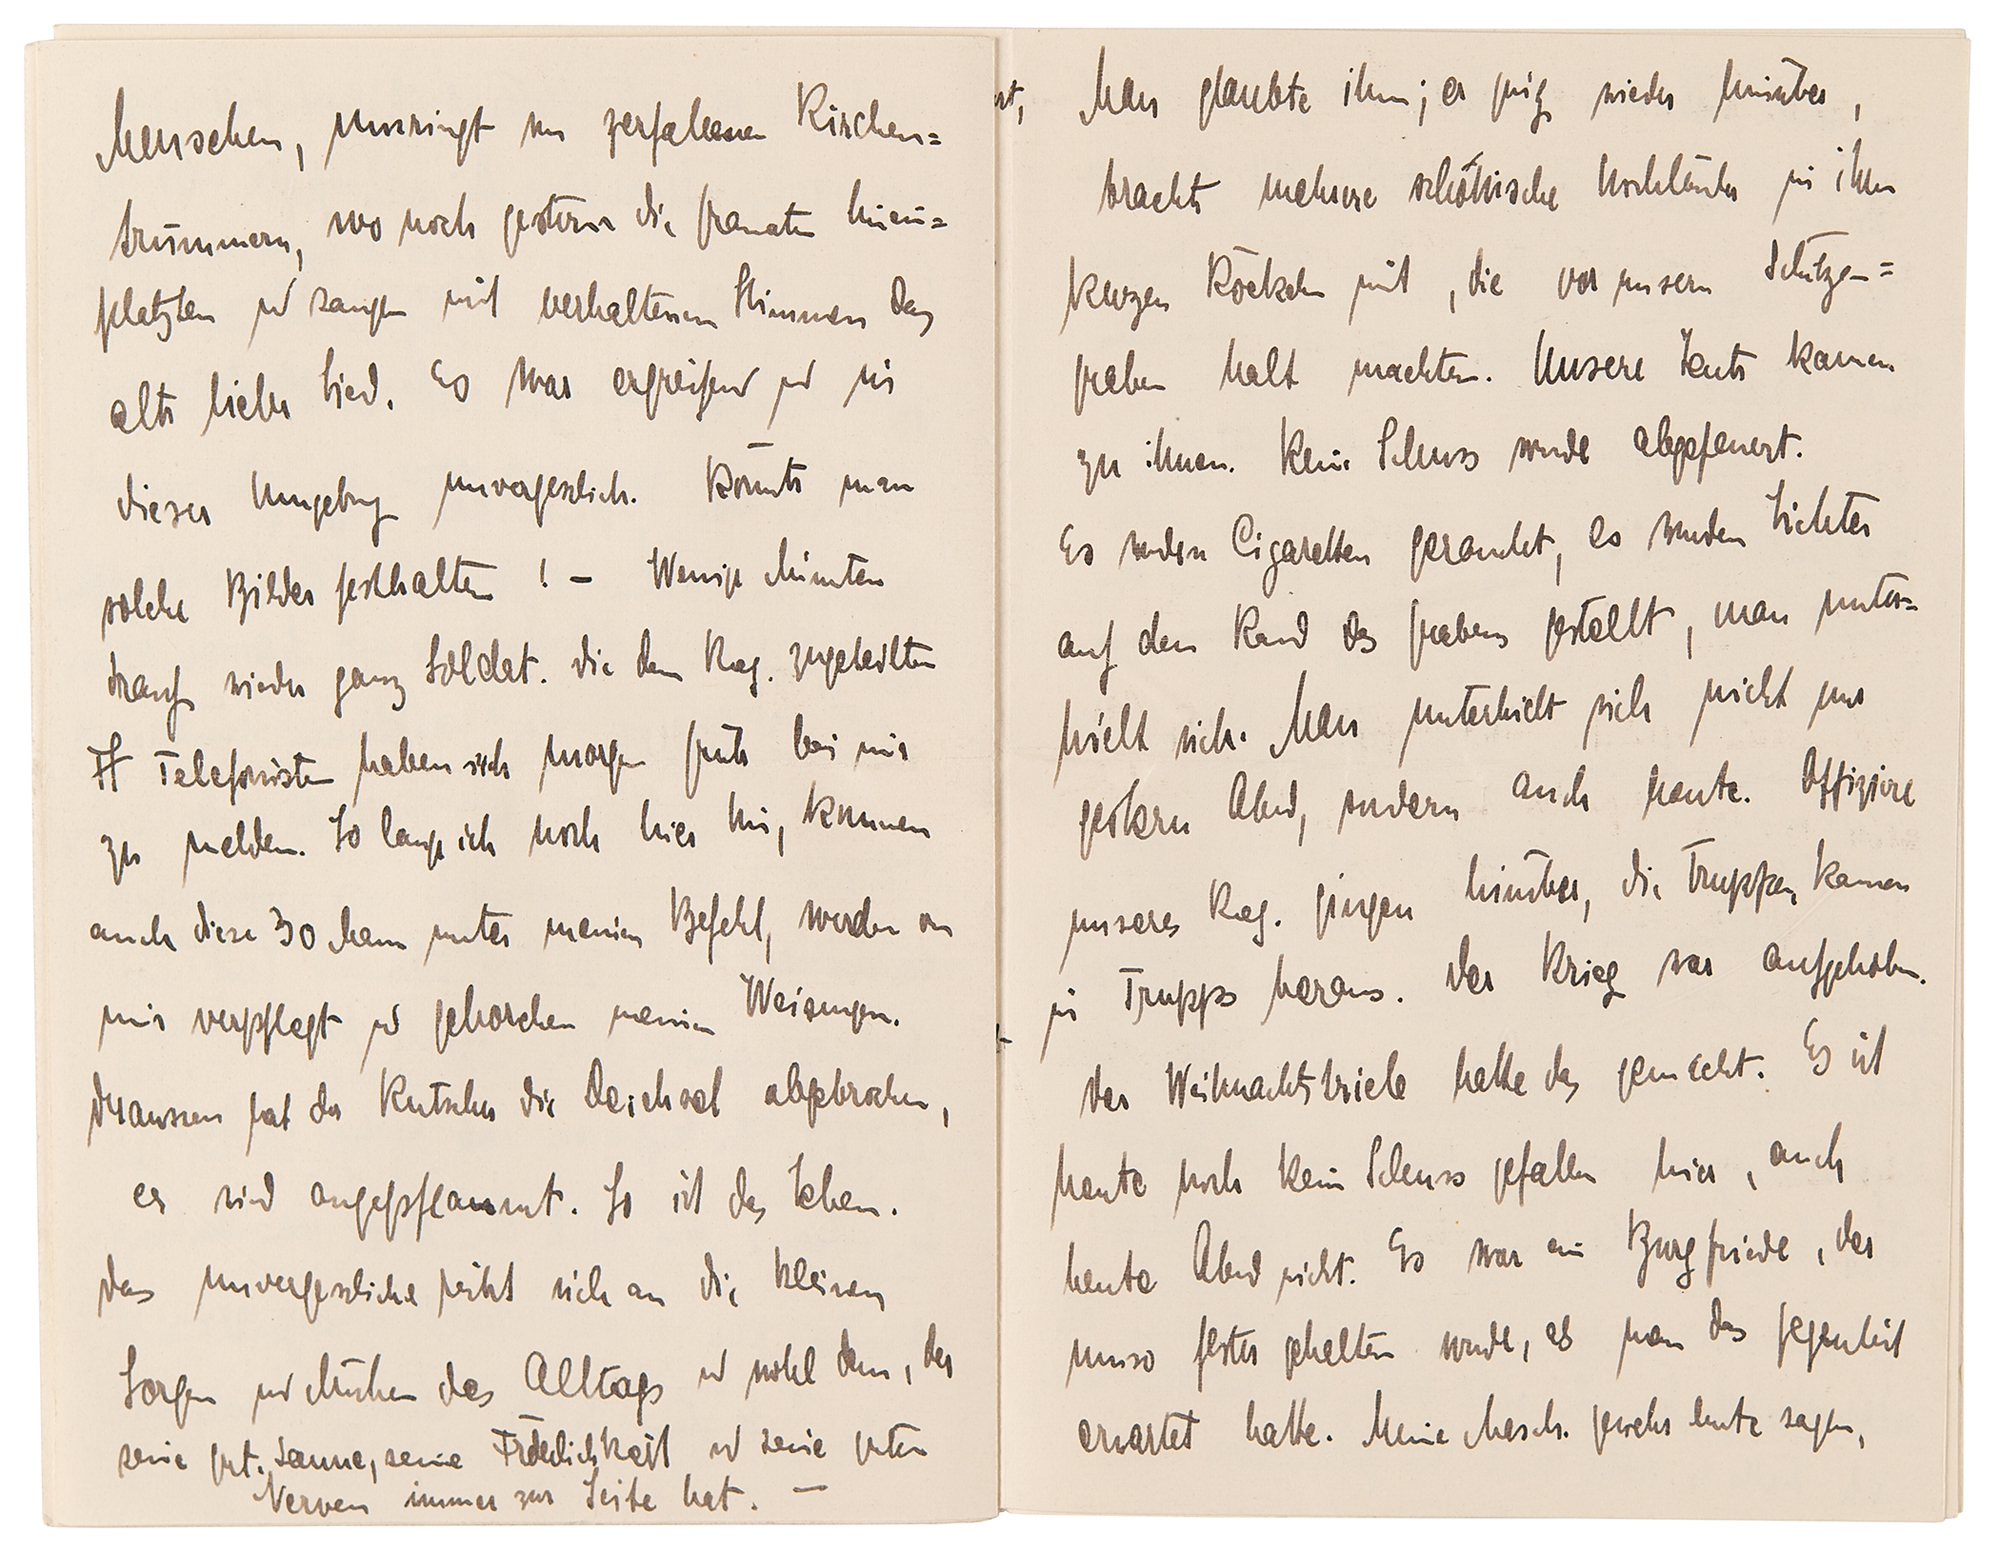 Menschen, umringt von zerfallenen Kirchen=
trümmern, wo noch gestern die Granaten hinein=
platzten und sangen mit verhaltenen Stimmen das
alte liebe Lied. Es war ergreifend und in
dieser Umgebung unvergesslich. Könnte man
solche Bilder festhalten! – Wenige Minuten
drauf wieder ganz Soldat. Die dem Reg. zugeteilten
Telefonisten haben sich morgen früh bei mir
zu melden. So lange ich noch hier bin, kommen
auch diese 30 Mann unter meinen Befehl, werden von
mir verpflegt und gehorchen meinen Weisungen.
Draussen hat der Kutscher die Deichsel abgebrochen,
es sind angespannt. So ist das Leben.
Das unvergessliche reiht sich an die kleinen
Sorgen und Mühen des Alltags und wohl dem, der
seine gut. Laune, seine Fröhlichkeit und seine guten
Nerven immer zur Seite hat. –
Man glaubte ihm; er ging wieder hinüber,
brachte mehrere schottische Hochländer in ihren
kurzen Röckchen mit, die vor unsern Schützen=
graben halt machten. Unsere Leute kamen
zu ihnen. Kein Schuss wurde abgefeuert.
Es wurden Cigaretten geraucht, es wurden Lichter
auf den Rand des Grabens gestellt, man unter=
hielt sich. Man unterhielt sich nicht nur
gestern Abend, sondern auch heute. Offiziere
unseres Reg. gingen hinüber, die Truppen kamen
in Trupps heraus. Der Krieg war aufgehoben.
Der Weihnachtsbriele hatte das gemacht. Es ist
heute noch kein Schuss gefallen hier, auch
heute Abend nicht. Es war ein Burgfriede, der
umso fester gehalten wurde, als man das Gegenteil
erwartet hatte. Meine Masch. gewehr leute sagen,